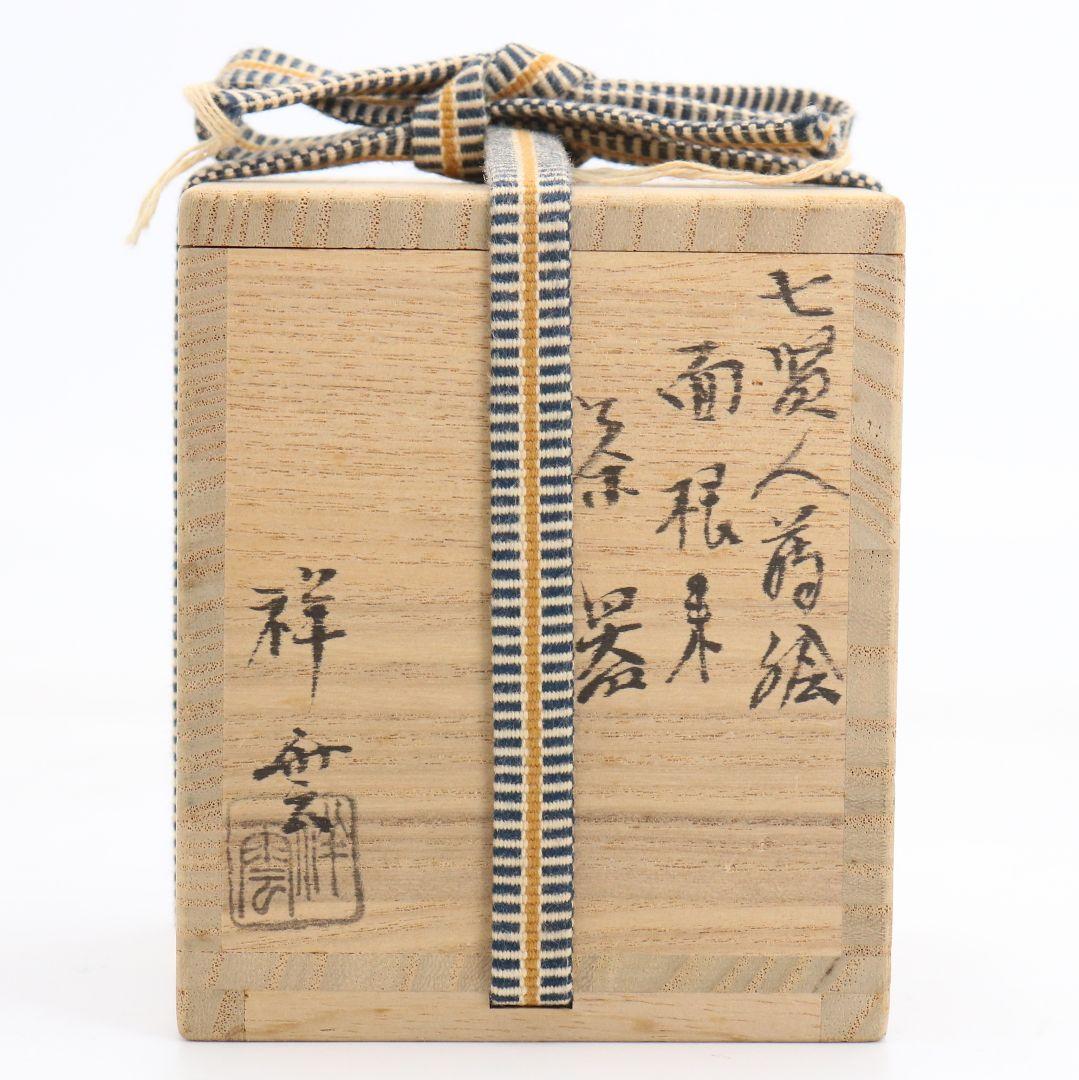 七賢人蒔絵
面根来
茶器
祥雲
祥雲